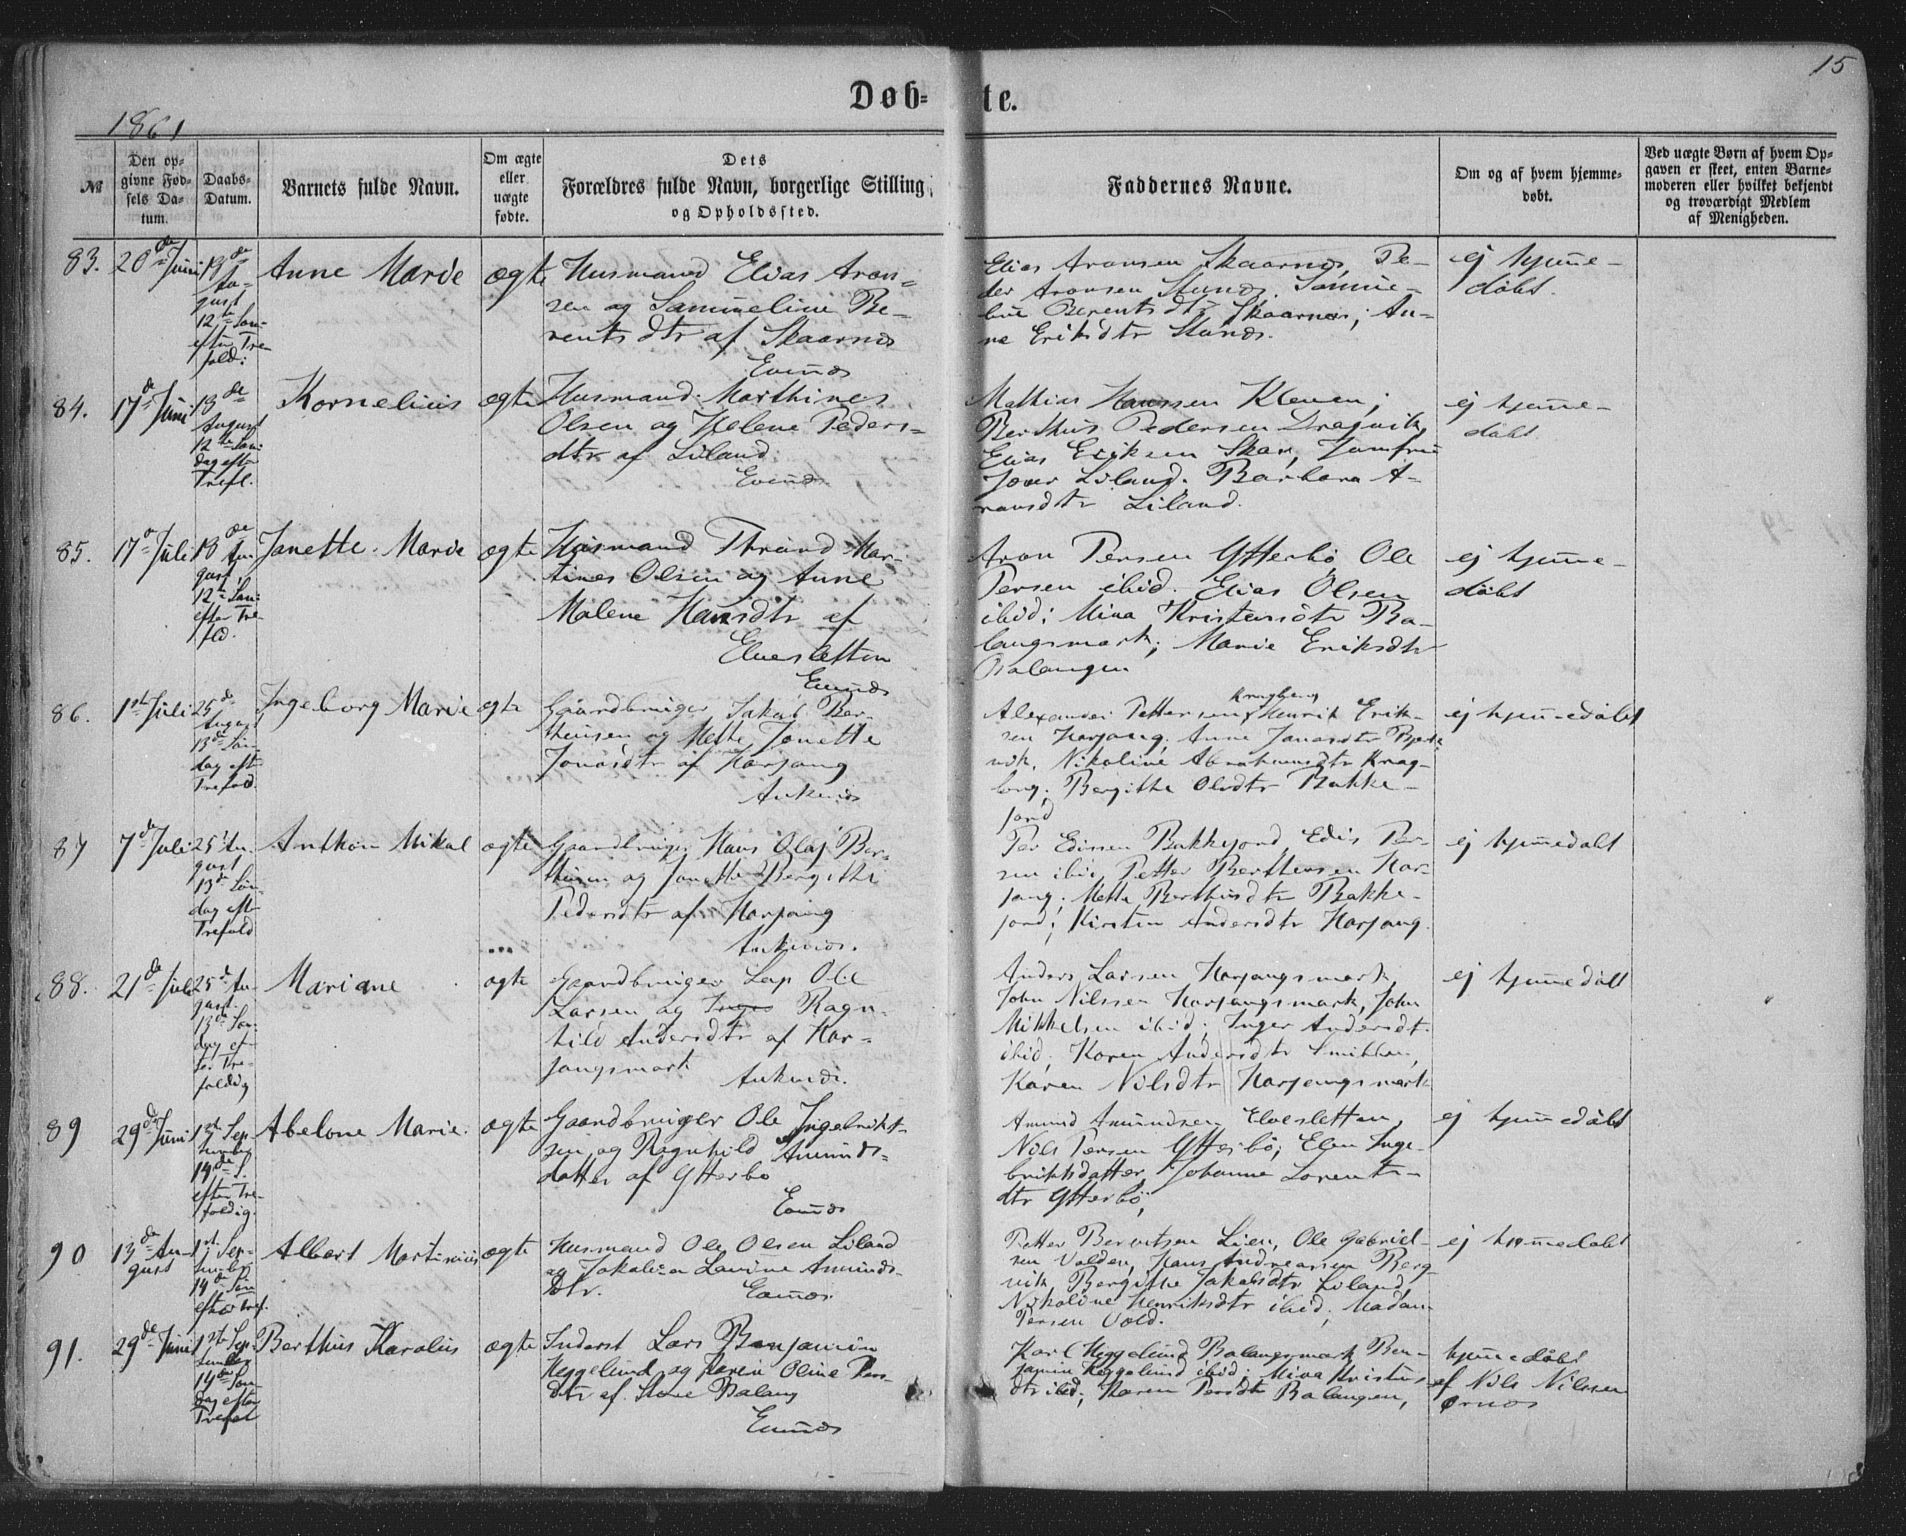 15
Døb=te.
1861
№
Den op=
givne Fød=
sels Da=
tum.
Daabs=
Datum.
Barnets fulde Navn.
Om ægte
eller
uægte
fødte.
Dets
Forældres fulde Navn, borgerlige Stilling
og Opholdssted.
Faddernes Navne.
Om og af hvem hjemme=
døbt.
Ved uægte Børn af hvem Op=
gaven er skeet, enten Barne=
moderen eller hvilket bekjendt
og troværdigt Medlem
af Menigheden.
83.
20de Juni
18de
Au-
gust
12te Søn-
efter Tre-
fold:
Anne Marie
ægte
Husmand Elias Aron-
sen og Sammeline Be-
rentsdtr af Skaarnes
Evenæs
Elias Aronsen Skaarnes, Pe-
der Aronsen Stunes. Samme-
line Berentsdtr Skaarnes, An-
ne Eriksdtr Stunes.
ej hjemme-
døbt.
84.
17de Juni
18de
August
12te Søn-
dag efter
Trefl.
Kornelius
ægte
Husmand Marthines
Olsen og Helene Peders-
dtr af Liland.
Evenæs
Mathias Hanssen Kleven,
Berthus Pedersen Dragvik,
Elias Eriksen Skar, Jomfru
Liland. Barbara A-
ronsdtr Liland.
ej hjemme-
døbt
85.
17de Juli
18de
Au-
gust
12te Søn-
efter Tre-
fld.
Janette Marie
ægte
Husmand Thrond Mar-
tines Olsen og Anne
Malene Hansdtr af
Elvesletten
Evenæs
Aron Persen Ytterbø, Ole
Persen ibid. Elias Olsen
ibid; Mina Kristensdtr Ba-
langsmark; Marie Eriksdtr
Balangen
ej hjemme-
døbt
86.
1ste Juli
25de
August
13de Søn-
dag eft
Trefold.
Ingeborg Marie
ægte
Gaardbruger Jakob Ber-
theusen og Mette Jonette
Jonasdtr af Harjang
Ankenes
Alexander Pettersen Kragberg, Henrik Erik-
sen Harjang, Anne Jonasdtr Bjerk-
vik, Nikoline Abrahamsdtr Krag-
berg; Bergithe Olsdtr Bakke-
jord
ej hjemmedøbt
87
7de Juli
25 Au-
gust
13de Søn-
dag eft
Trefold
Anthon Mikal
ægte
Gaardbruger Hans Olaj Ber-
theusen og Jonette Bergithe
Pedersdtr af Harjang
Ankenes.
Per Edissen Bakkejord, Edis Per-
sen ibid, Petter Bertheusen Har-
jang; Mette Berthusdtr Bakke-
jord; Kirsten Andersdtr Harjang.
ej hjemmedøbt
88.
21de Juli
25de Au-
gust.
13de Søn-
dag ef-
ter Tre-
foldig
Mariane
ægte
Gaardbruger Lap Ole
Larsen og Inger Ragn-
hild Andersdtr af Har-
jangsmark
Ankenes.
Anders Larsen Harjangsmark,
John Nilssen Harjangsmark, John
Mikkelsen ibid; Inger Andersdt.
ibid; Karen Andersdtr Smitthen,
Karen Nilsdtr Harjangsmark
ej hjemmedøbt
89
29de Juni
1ste Sep-
tember
14de S.
efter Tre-
foldig.
Abelone Marie.
ægte
Gaardbruger Ole Ingebrikt-
sen og Regnhild Amunds-
datter af Ytterbø
Evenæs
Amund Amundsen Elvesletten,
Nils Persen Ytterbø; Elen Inge-
briktsdatter, Johanne Lorents-
dtr Ytterbø;
ej hjemmedøbt
90
13de Au-
gust
1ste Sep-
tember
14de Søn
efter Tref.
Albert Martinius
ægte
Husmand Ole Olsen Liland
og Jakobine Lavine Amunds-
dtr.
Evenæs.
Petter Berntsen Lien, Ole Gabriel-
sen Volden, Hans Andreassen Berg-
vik, Bergithe Jakobsdtr Liland,
Nikoline Henriksdtr ibid; Madam
Persen Vold.
ej hjemmedøbt
91.
29de Juni
1ste Sep-
tember
14de Søn-
dag efter
Trefol
Berthus Karolius
ægte
Inderst Lars Benjamin
Heggelund og Karen Oline Pers-
dtr af Store Balang
Evenæs
Karl Heggelund Balangsmark, Ben-
jamin Heggelund ibid; Mina Kristens-
dtr ibid; Karen Persdtr Balangen,
hjemmedøbt
af Nils Nilssen
Ørnes